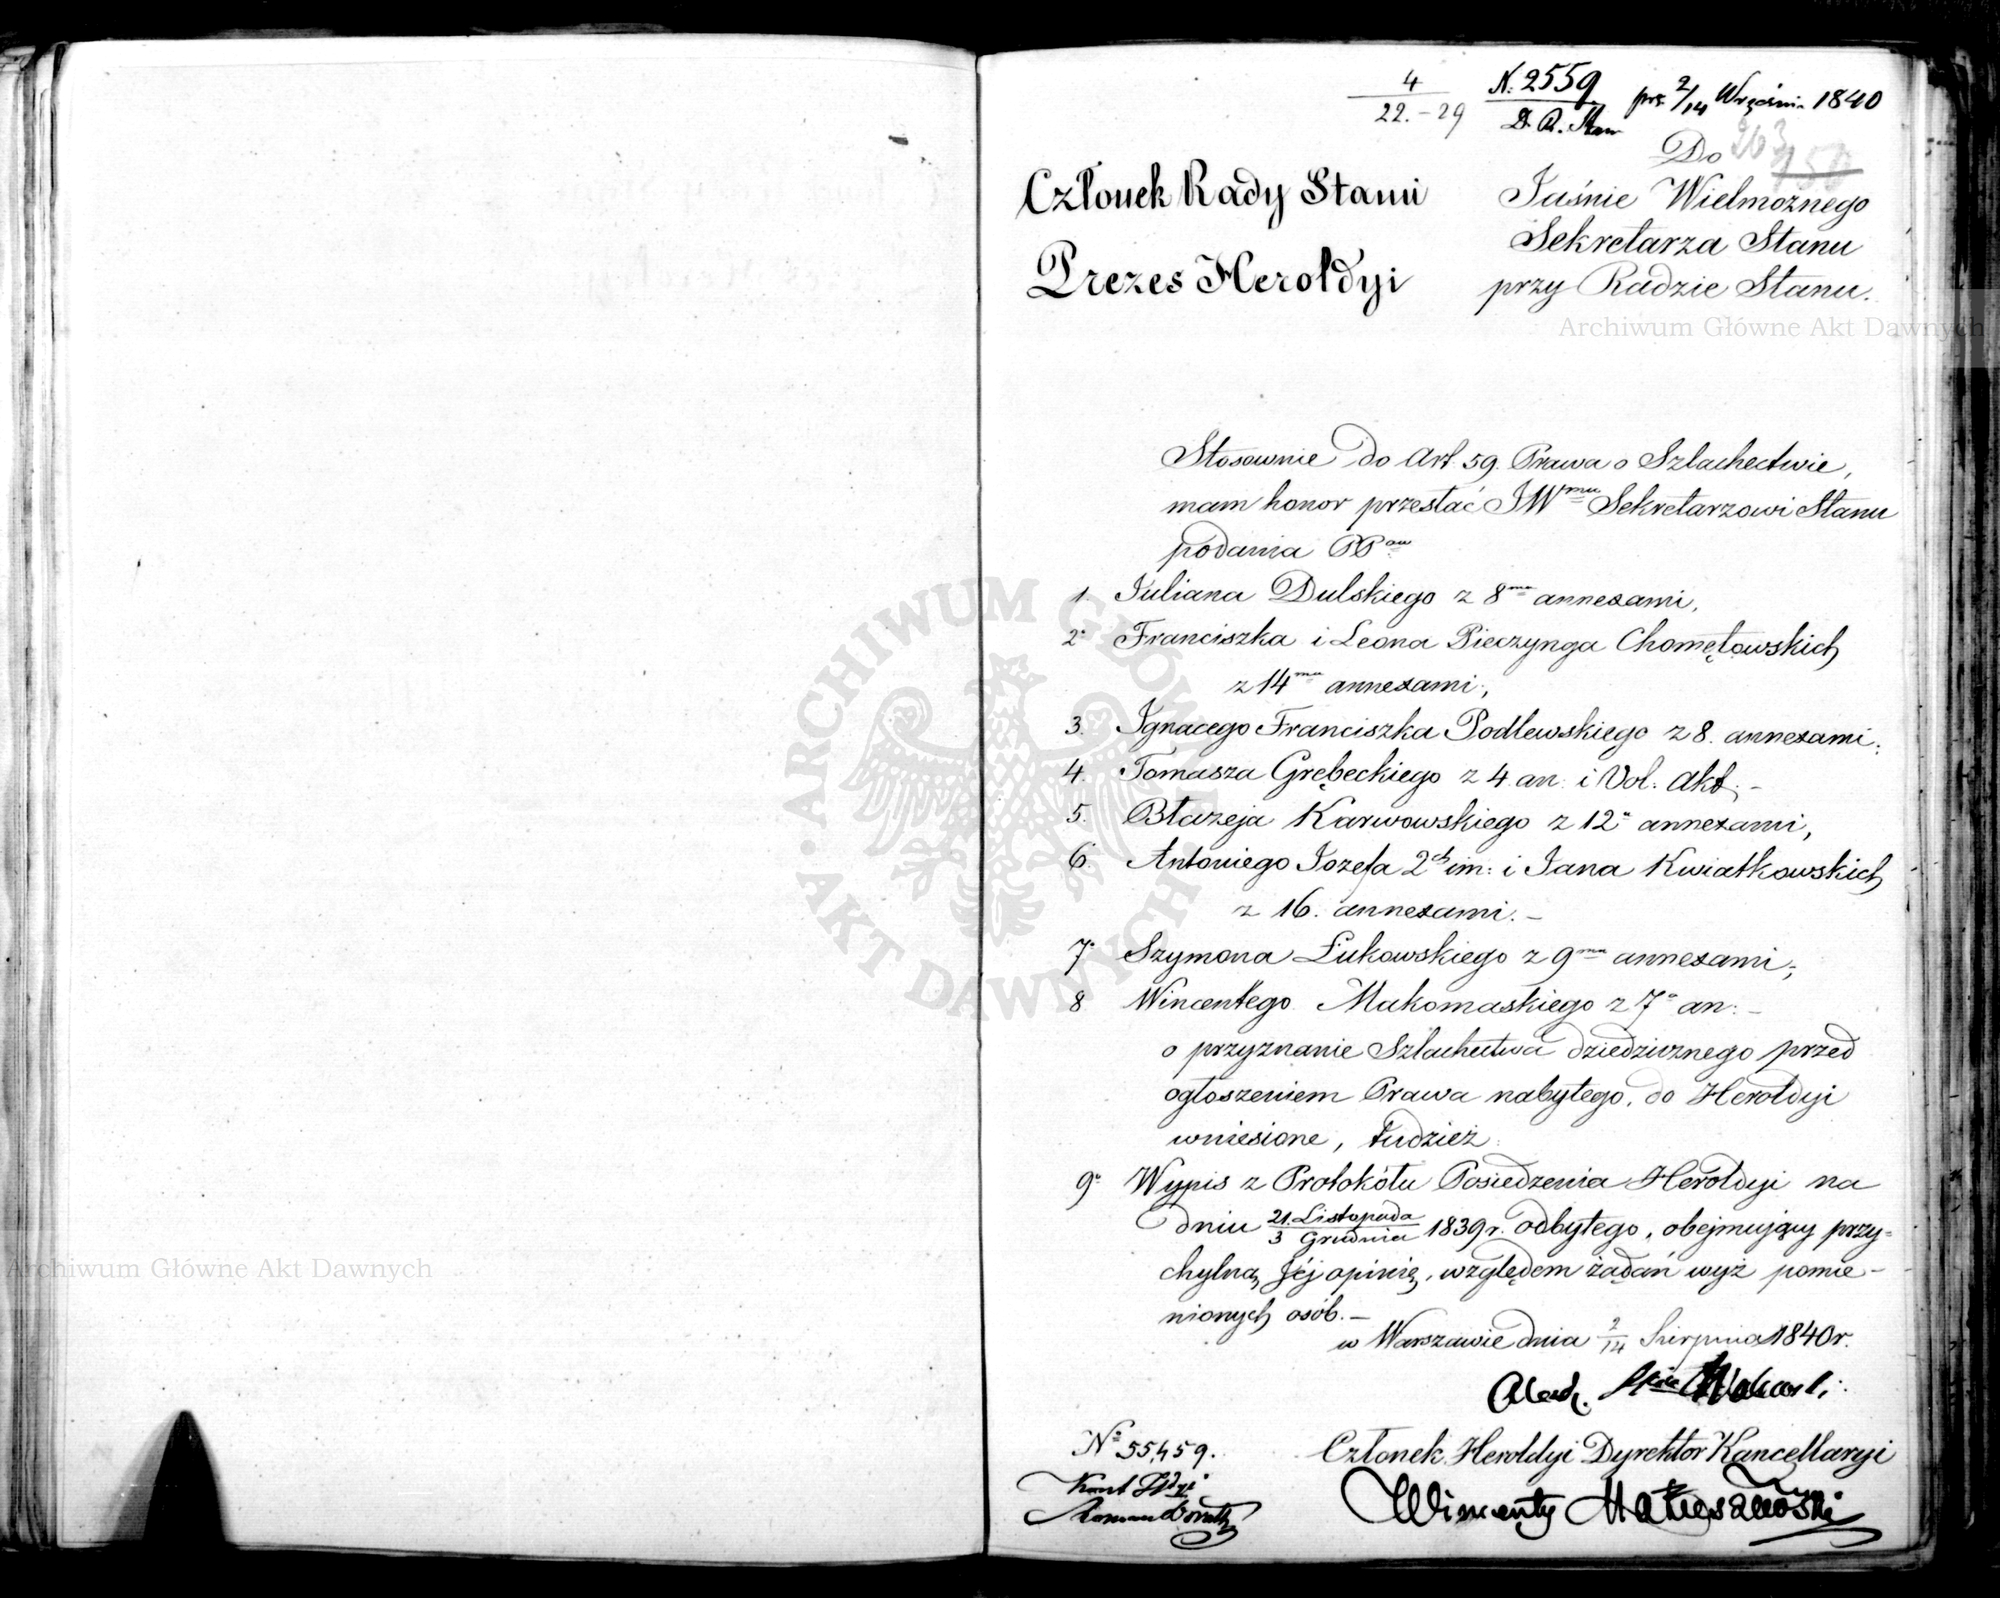 4
22.-29
N. 2559
D. R. Stan
prs. 2/14 Września 1840
263
150
Członek Rady Stanu
Prezes Herołdyi
Do
Jaśnie Wielmożnego
Sekretarza Stanu
przy Radzie Stanu.
Archiwum Główne Akt Dawnych
Stosownie do Art. 59. Prawa o Szlachectwie,
mam honor przesłać JWmu Sekretarzowi Stanu
podania PPow
1. Juliana Dulskiego z 8ma annexami,
2° Franciszka i Leona Pieczynga Chomętowskich
z 14ma annexami;
3. Ignacego Franciszka Podlewskiego z 8. annexami;
4. Tomasza Grębeckiego z 4 an: i Vol: Akt; –
5. Błażeja Karwowskiego z 12a annexami,
6. Antoniego Józefa 2ch im: i Jana Kwiatkowskich
z 16. annexami. –
7° Szymona Łukowskiego z 9ma annexami;
8 Wincentego Makomaskiego z 7a an: –
o przyznanie Szlachectwa dziedzicznego przed
ogłoszeniem Prawa nabytego, do Herołdyi
wniesione, tudzież
9° Wypis z Protokółu Posiedzenia Herołdyi na
dniu 21. Listopada / 3 Grudnia 1839 r. odbytego, obejmujący przy-
chylną Jéj opinię, względem żądań wyż pomie-
nionych osób. –
w Warszawie dnia 2/14 Sierpnia 1840 r.
Archiwum Główne Akt Dawnych
Członek Herołdyi Dyrektor Kancellaryi
Wincenty Matuszewski
No 55,459.
ARCHIWUM GŁÓWNE AKT DAWNYCH